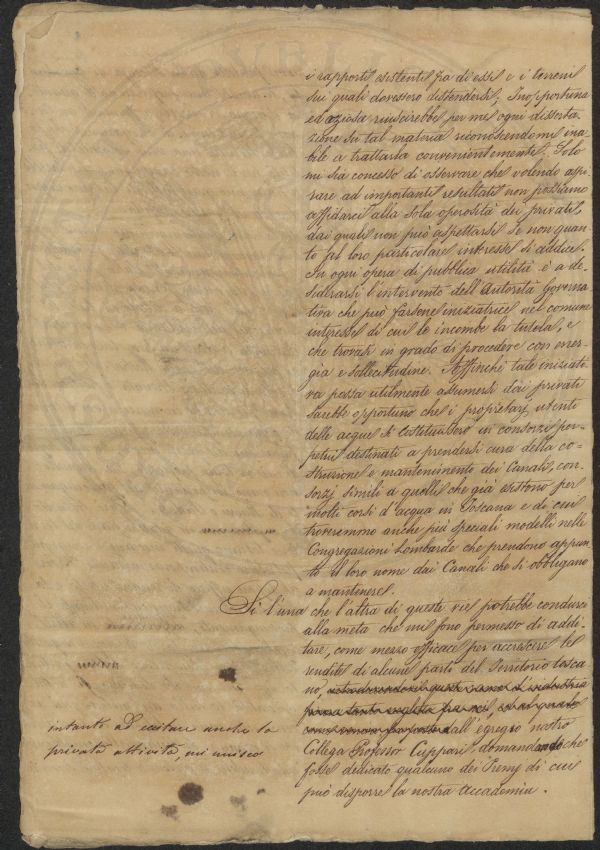 i rapporti esistenti fra di essi e i terreni
sui quali dovessero distendersi; Inopportuna
ed oziosa riuscirebbe per me ogni disserta-
zione su tal materia riconoscendomi ina-
bile a trattarla convenientemente. Solo
mi sia concesso di osservare che volendo aspi-
rare ad importanti resultati non possiamo
affidarci alla sola operosità dei privati,
dai quali non può aspettarsi se non quan-
to al loro particolare interesse si addice.
In ogni opera di pubblica utilità è a de-
siderarsi l'intervento dell'Autorità Governa-
tiva che può farsene iniziatrice nel comune
interesse di cui le incombe la tutela, e
che trovasi in grado di procedere con ener-
gia e sollecitudine. Affinchè tale iniziati-
va possa utilmente assumersi dai privati
sarebbe opportuno che i proprietarj utenti
delle acque si costituissero in consorzj per-
petui destinati a prendersi cura della co-
struzione e mantenimento dei Canali, con-
sorzj simili a quelli che già esistono per
molti corsi d'acqua in Toscana e di cui
troveremmo anche più speciali modelli nelle
Congregazioni Lombarde che prendono appun-
to il loro nome dai Canali che si obbligano
a mantenere.
Sì l'una che l'altra di queste vie potrebbe condurci
alla meta che mi sono permesso di addi-
tare, come mezzo efficace per accrescere le
rendite di alcune parti del Territorio tosca-
no,
intanto ad eccitare anche la
privata attività, mi unisco
dall'egregio nostro
Collega Professor Cuppari domandando che
fosse dedicato qualcuno dei Premj di cui
può disporre la nostra Accademia.